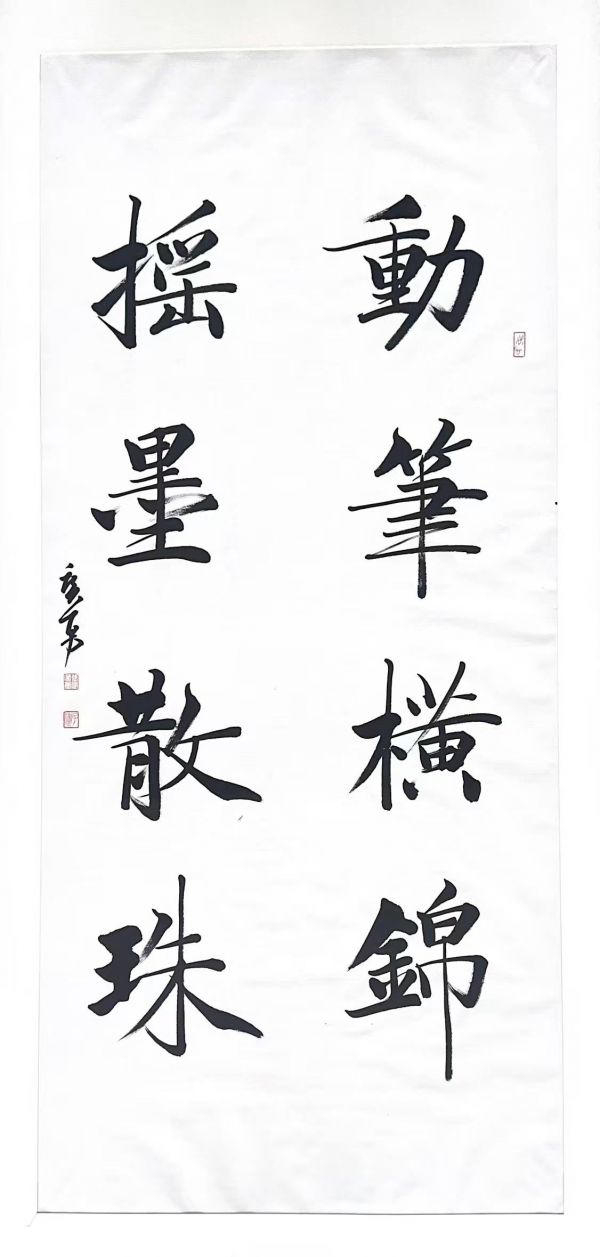 動筆橫錦
摇墨散珠